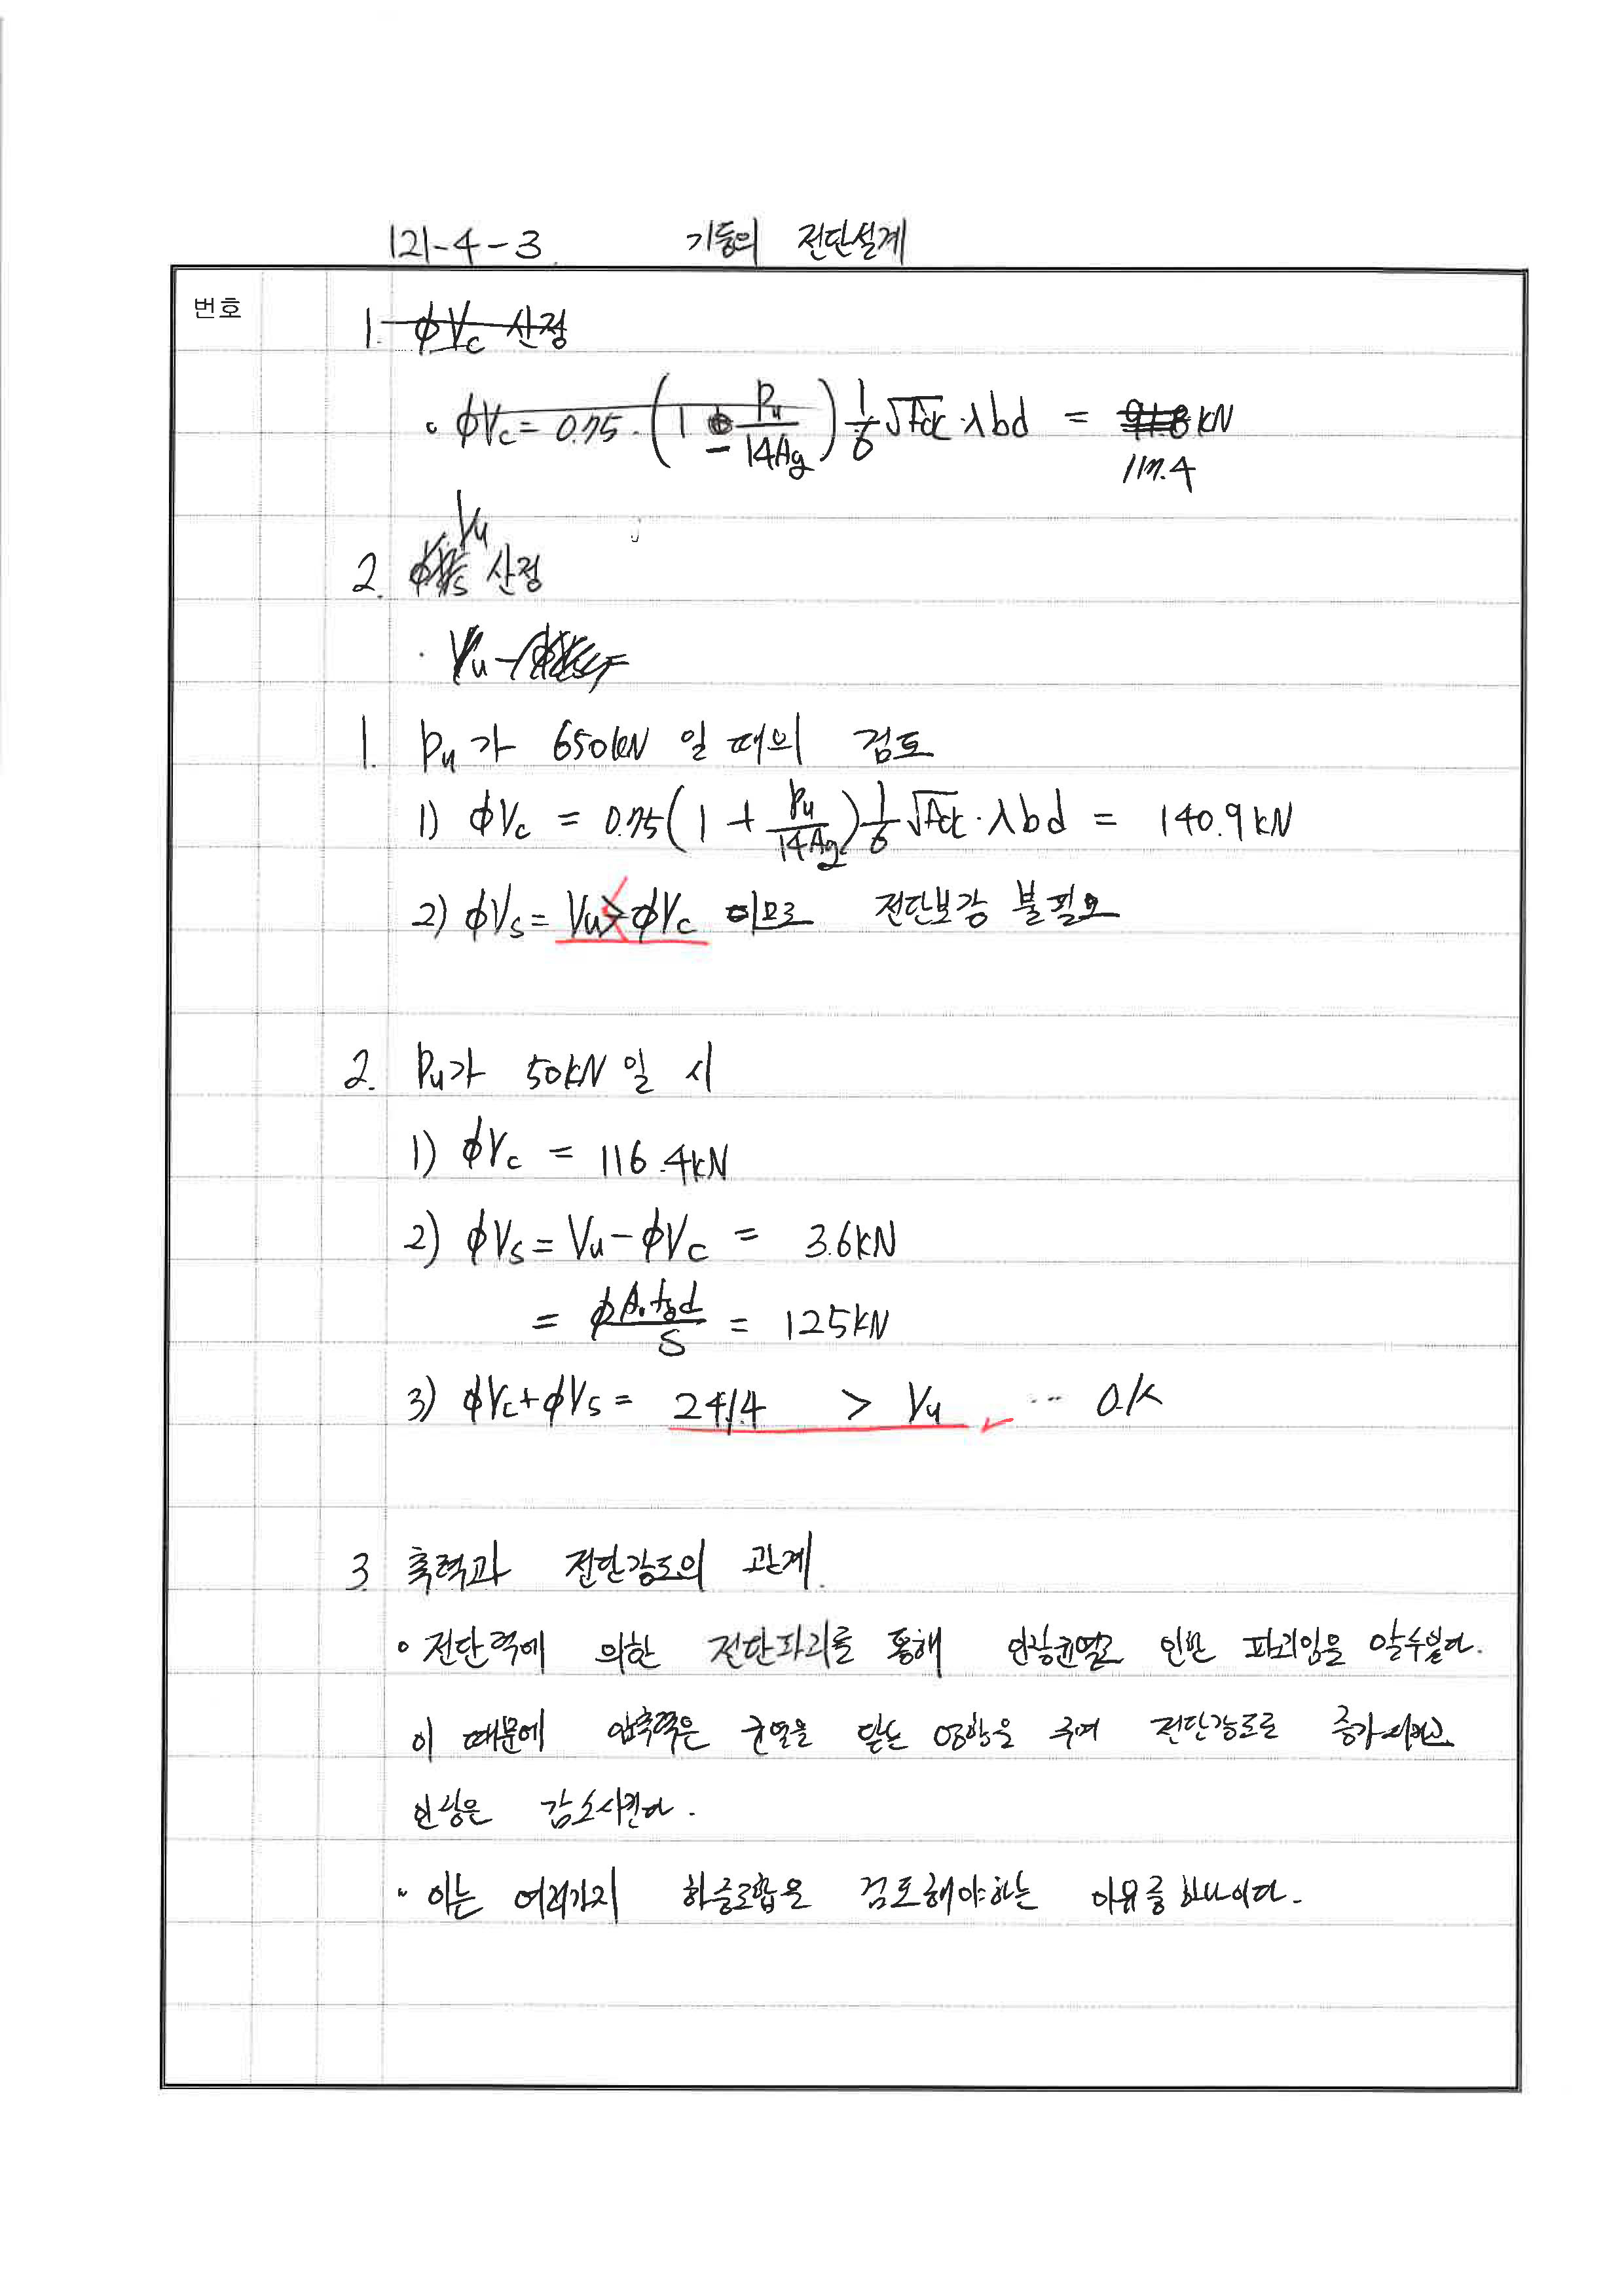 121-4-3. 기둥의 전단설계
번호
1. ϕVc 산정
∘ ϕVc = 0.75 · (1 - Pu/14Ag) 1/6 √fck · λbd = 91.8 kN
117.4
Vu
2. ϕVs 산정
· Vu -
1. Pu가 650kN 일 때의 검토
1) ϕVc = 0.75(1 + Pu/14Ag) 1/6 √fck · λbd = 140.9 kN
2) ϕVs = Vu > ϕVc 이므로 전단보강 불필요
2. Pu가 50kN 일 시
1) ϕVc = 116.4kN
2) ϕVs = Vu - ϕVc = 3.6kN
= ϕAv fy d/S = 125kN
3) ϕVc + ϕVs = 241.4 > Vu ··· O.K
3. 축력과 전단강도의 관계.
∘ 전단력에 의한 전단파괴를 통해 인장균열로 인한 파괴임을 알수있다.
이 때문에 압축력은 균열을 닫는 영향을 주며 전단강도를 증가시키고
인장은 감소시킨다.
∘ 이는 여러가지 하중조합을 검토해야하는 이유중 하나이다.